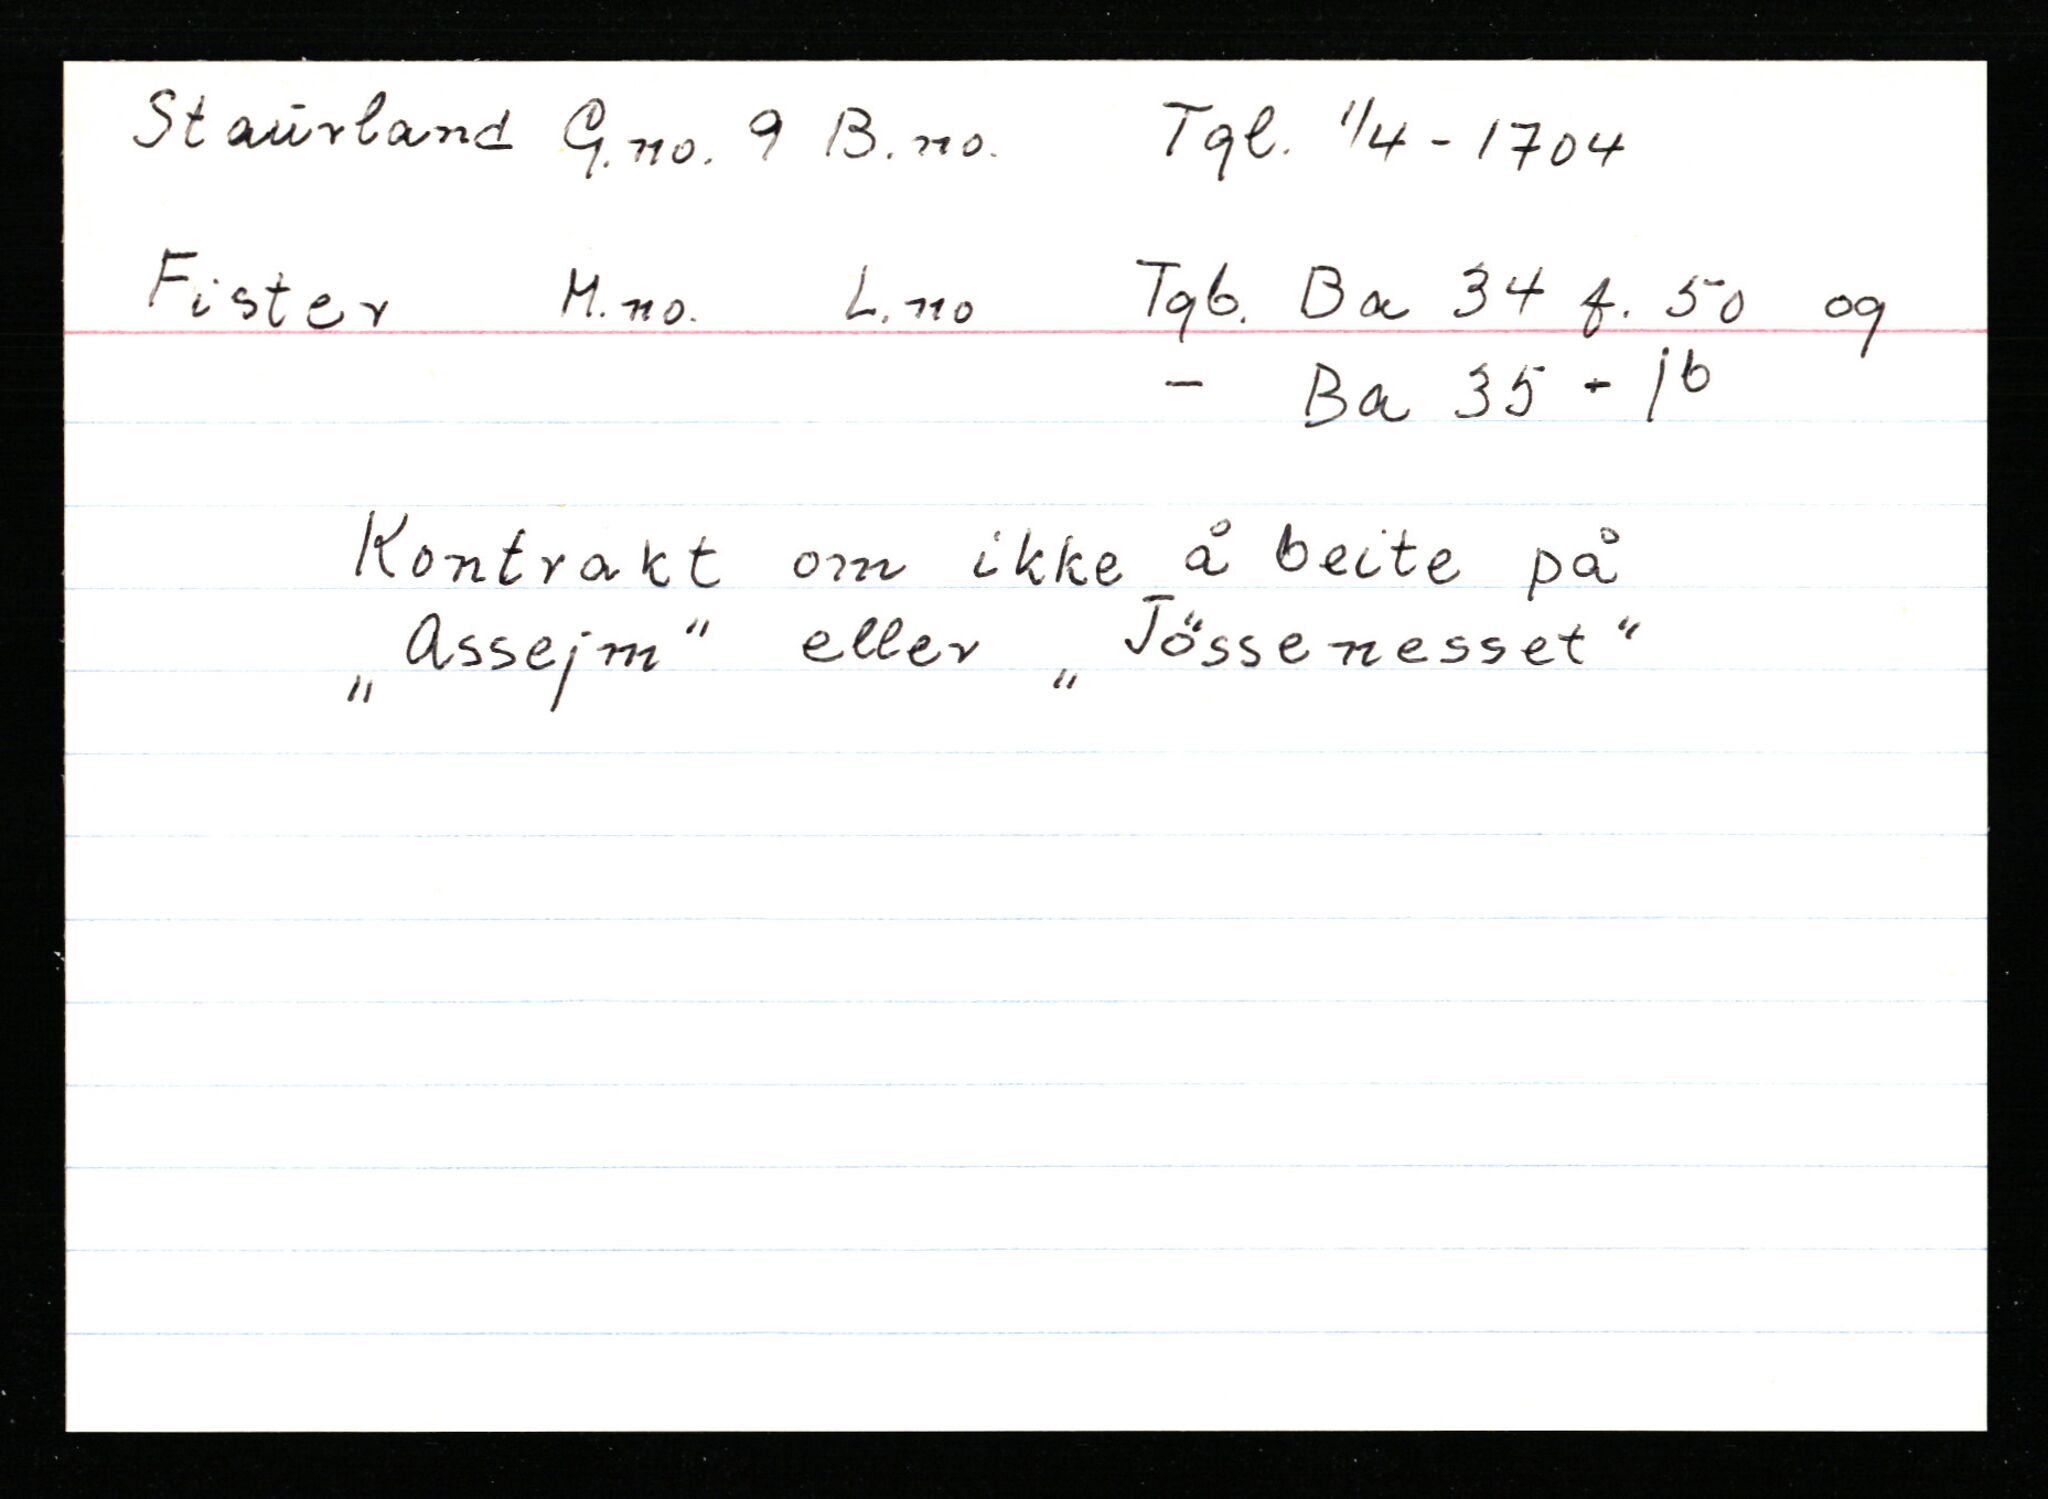 Staurland G.no. 9 B.no. Tgl. 1/4 - 1704
Fister M.no. L.no Tgb. Ba 34 f. 50 og
- Ba 35 - 1b
Kontrakt om ikke å beite på
„Assejm" eller „Tössenesset"